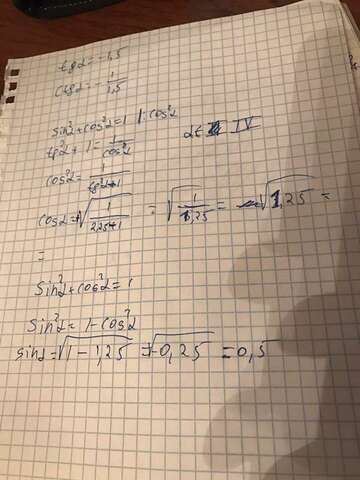 tgα = -1,5
ctgα = -1/1,5
sin²α + cos²α = 1 | : cos²α
tg²α + 1 = 1/cos²α
α ∈ IV
cos²α = 1/tg²α+1
cosα = √(1/2,25+1) = √(1/1,25) = √1,25 =
=
sin²α + cos²α = 1
sin²α = 1 - cos²α
sinα = √(1 - 1,25) = √-0,25 = 0,5